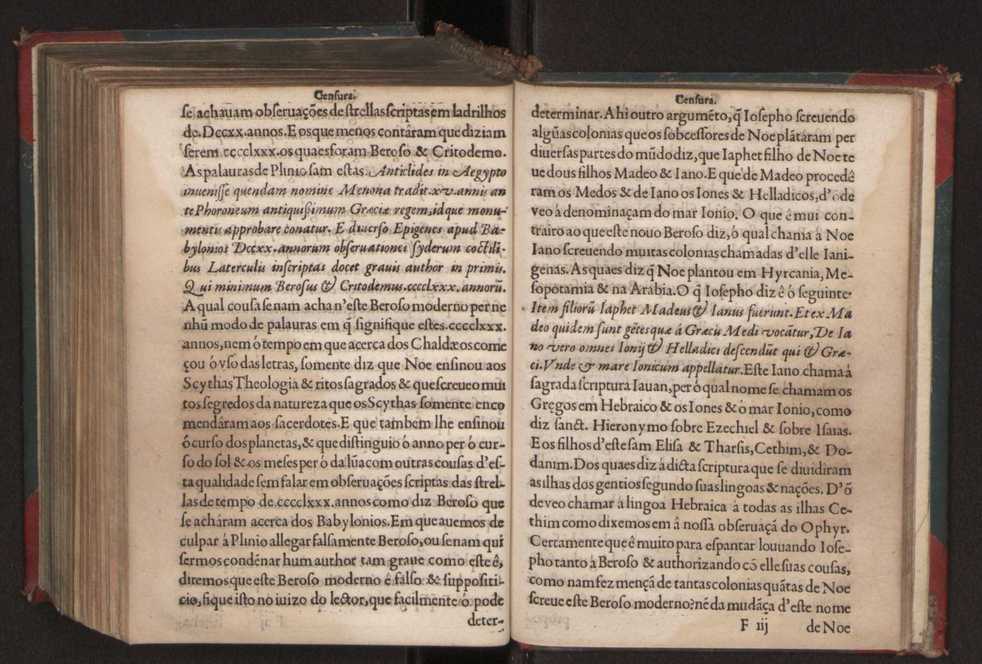 Censura.
se achauam obseruações de strellas scriptas em ladrilhos
de. Dccxx. annos. E os que menos contâram que diziam
serem cccclxxx. os quaes foram Beroso & Critodemo.
As palauras de Plinio sam estas. Anticlides in Aegypto
inuenisse quendam nomine Menona tradit. xv. annis an
te Phoroneum antiquissimum Græciæ regem, idque monu-
mentis approbare conatur. E diuerso Epigenes apud Ba-
bylonios Dccxx. annorum obseruationes syderum coctili-
bus Laterculis inscriptas docet grauis author in primis.
Qui minimum Berosus & Critodemus. ccccLxxx. annorũ.
A qual cousa se nam acha n'este Beroso moderno per ne
nhũ modo de palauras em q̃ signifique estes. cccclxxx.
annos, nem ó tempo em que acerca dos Chaldæos come
çou ó vso das letras, somente diz que Noe ensinou aos
Scythas Theologia & ritos sagrados & que screueo mui
tos segredos da natureza que os Scythas somente enco
mendâram aos sacerdotes. E que tambem lhe ensinou
ó curso dos planetas, & que distinguio ó anno per ó cur-
so do sol & os meses per ó da lũa com outras cousas d'es-
ta qualidade sem falar em obseruações scriptas das strel-
las de tempo de. cccclxxx. annos como diz Beroso que
se acháram acerca dos Babylonios. Em que auemos de
culpar à Plinio allegar falsamente Beroso, ou se nam qui
sermos condẽnar hum author tam graue como este ê,
diremos que este Beroso moderno ê falso & suppositi-
cio, fique isto no iuizo do lector, que facilmente ó pode
deter-
Censura.
determinar. A hi outro argumẽto, q̃ Iosepho screuendo
algũas colonias que os sobcessores de Noe plátáram per
diuersas partes do mũdo diz, que Iaphet filho de Noe te
ue dous filhos Madeo & Iano. E que de Madeo procedê
ram os Medos & de Iano os Iones & Helladicos, d'ó de
veo á denominaçam do mar Ionio. O que ê mui con-
trairo ao que este nouo Beroso diz, ó qual chama à Noe
Iano screuendo muitas colonias chamadas d'elle Iani-
genas. As quaes diz q̃ Noe plantou em Hyrcania, Me-
sopotamia & na Arabia. O q̃ Iosepho diz ê ó seguinte.
Item filiorũ Iaphet Madeus & Ianus fuerunt. Et ex Ma
deo quidem sunt gẽtes quæ á Græcis Medi vocãtur, De Ia
no vero omnes Ionij & Helladici descendũt qui & Græ-
ci. Vnde & mare Ionicum appellatur. Este Iano chama á
sagrada scriptura Iauan, per ó qual nome se chamam os
Gregos em Hebraico & os Iones & ó mar Ionio, como
diz sanct. Hieronymo sobre Ezechiel & sobre Isaias.
E os filhos d'este sam Elisa & Tharsis, Cethim, & Do-
danim. Dos quaes diz á dicta scriptura que se diuidiram
as ilhas dos gentios segundo suas lingoas & nações. D'õ
de veo chamar á lingoa Hebraica à todas as ilhas Ce-
thim como dixemos em á nossa obseruaçã do Ophyr.
Certamente que ê muito para espantar louuando Iose-
pho tanto à Beroso & authorizando cõ elle suas cousas,
como nam fez mençã de tantas colonias quãtas de Noe
screue este Beroso moderno? nẽ da mudãça d'este nome
F iij de Noe